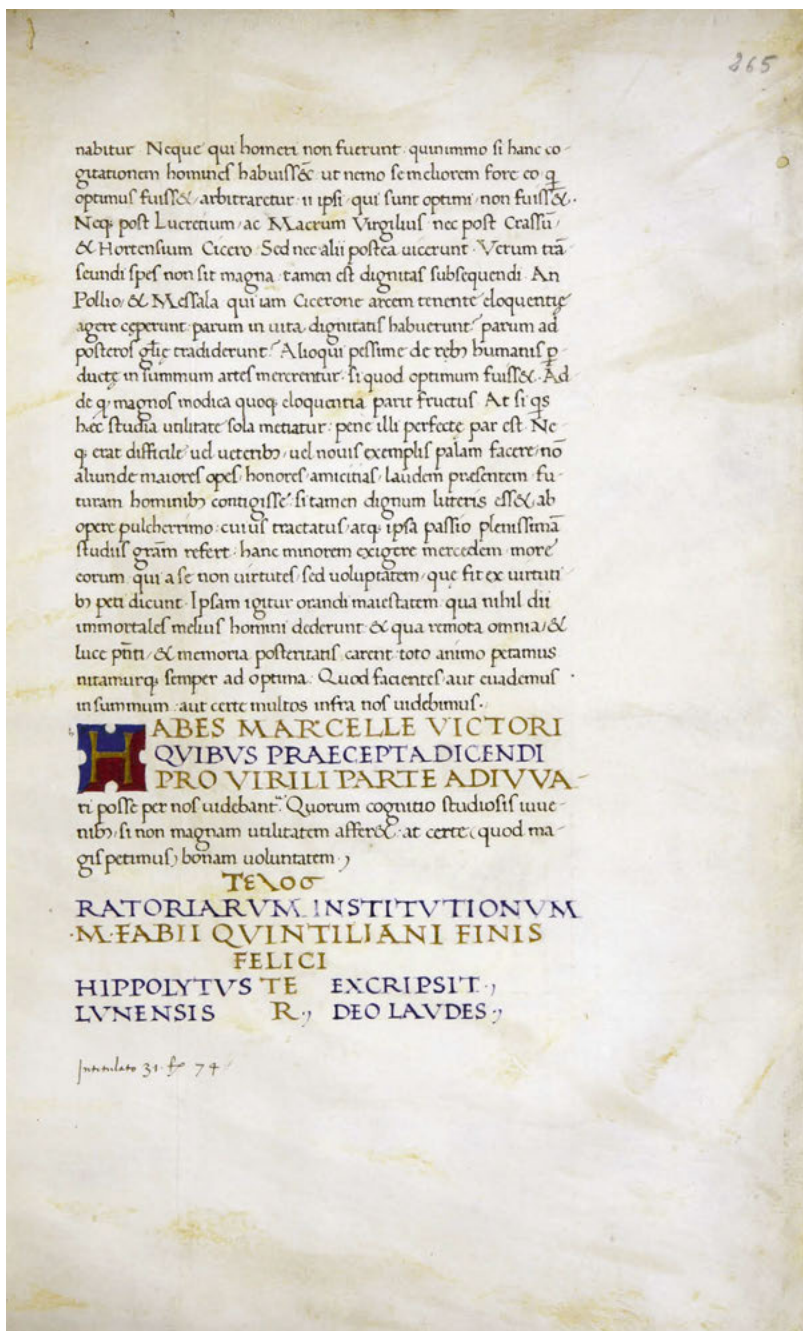 265
nabitur Neque qui homeri non fuerunt quinimmo si hanc co-
gitationem homines habuissẽt ut nemo se meliorem fore eo q̃
optimus fuisset arbitraretur ii ipsi qui sunt optimi non fuisset.
Neq; post Lucretium ac Macrum Virgilius nec post Crassũ
& Hortensium Cicero Sed nec alii postea uicerunt Verum trã
seundi spes non sit magna tamen est dignitas subsequendi An
Pollio & Messala qui iam Cicerone arcem tenente eloquentię
agere cęperunt parum in uita dignitatis habuerunt? parum ad
posteros gl̃ię tradiderunt? Alioqui pessime de reb; humanis p
ductę in summum artes mererentur si quod optimum fuisset. Ad
de q; magnos modica quoq; eloquentia parit fructus At si q̃s
hęc studia utilitate sola metiatur pene illi perfectę par est Ne
q; erat difficile uel ueterib; uel nouis exemplis palam facere nõ
aliunde maiores opes honores amicitias laudem pręsentem fu-
turam hominib; contigisse si tamen dignum litteris esset ab
opere pulcherrimo cuius tractatus atq; ipsa passio plenissimã
studiis gr̃am refert hanc minorem exigere mercedem more
eorum qui a se non uirtutes sed uoluptatem que fit ex uirtuti
b; peti dicunt Ipsam igitur orandi maiestatem qua nihil dii
immortales melius homini dederunt & qua remota omnia &
luce pñti & memoria posteritatis carent toto animo petamus
nitamurq; semper ad optima Quod facientes aut euademus
in summum aut certe multos infra nos uidebimus.
HABES MARCELLE VICTORI
QVIBVS PRAECEPTA DICENDI
PRO VIRILI PARTE ADIVVA-
ri posse per nos uidebant̃ Quorum cognitio studiosis iuue-
nib; si non magnam utilitatem afferet at certe quod ma-
gis petimus bonam uoluntatem
ΤΕΛΟσ
RATORIARVM INSTITVTIONVM
·M·FABII QVINTILIANI FINIS
FELICI
HIPPOLYTVS TE EXCRIPSIT
LVNENSIS R· DEO LAVDES
Intitulato 31 74